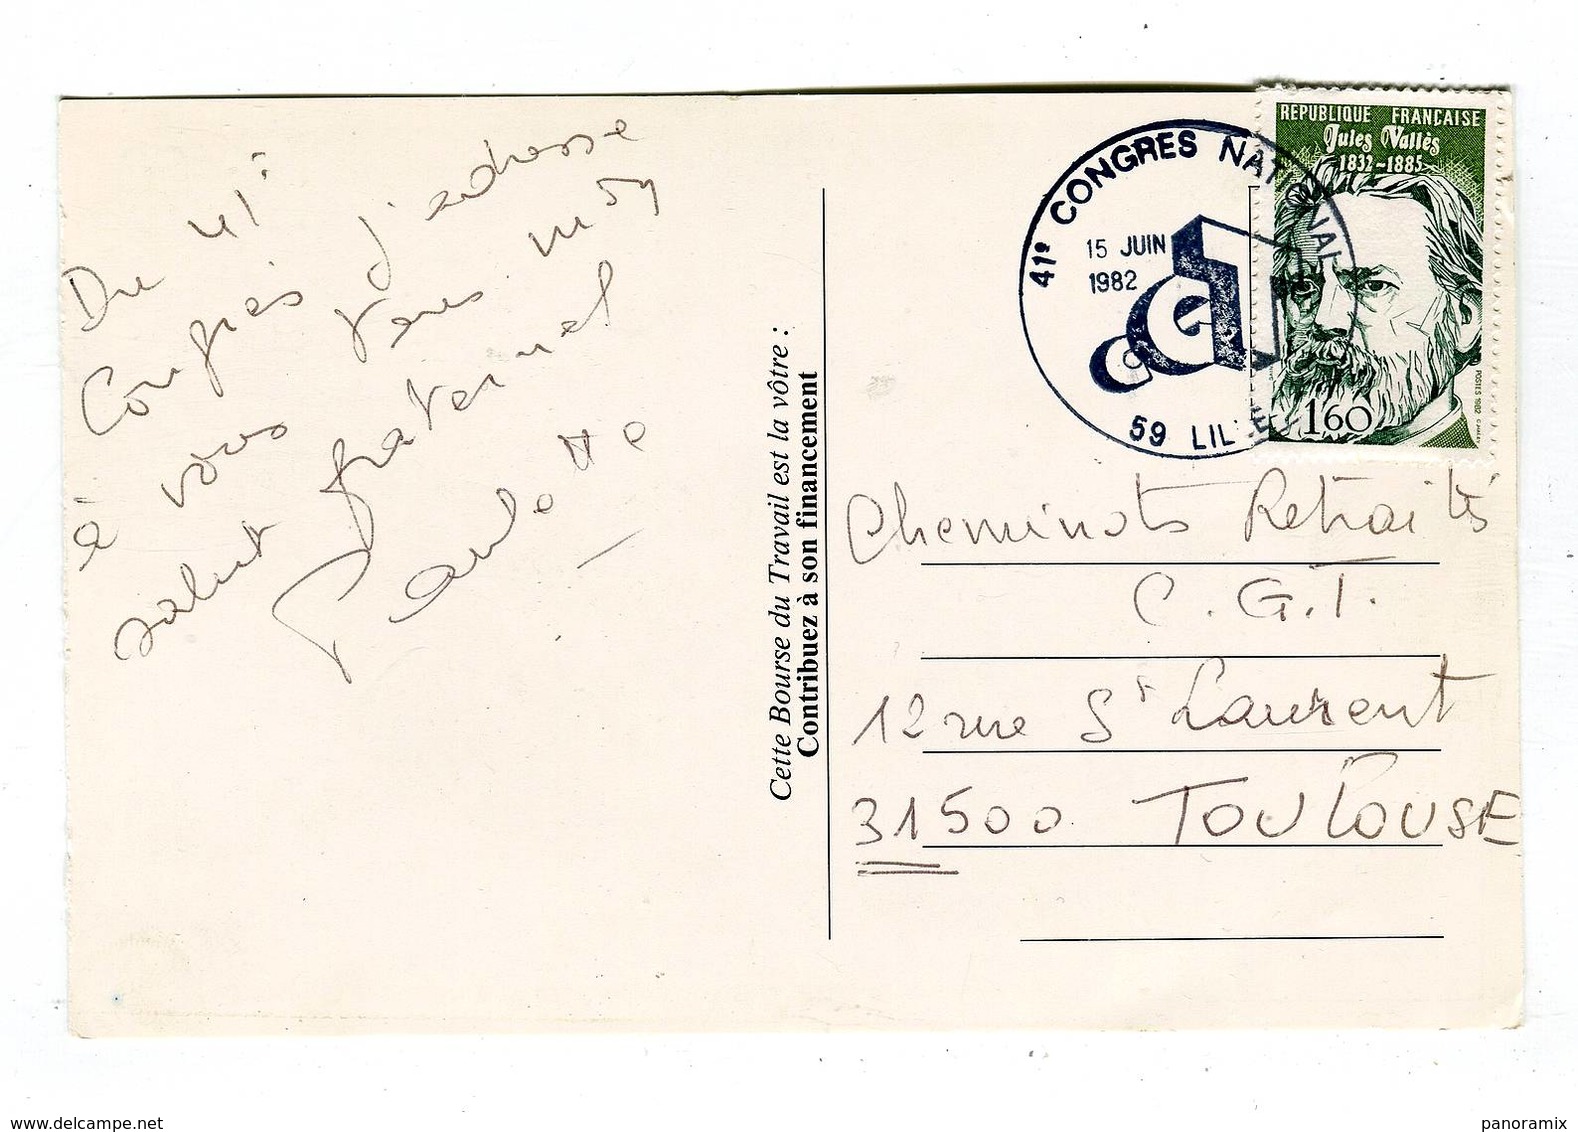 Du 41e
Congrès j'adresse
à vous tous mon
salut fraternel
Paulette
Cette Bourse du Travail est la vôtre :
Contribuez à son financement
41e CONGRES NATIONAL
15 JUIN
1982
CGT
59 LILLE
REPUBLIQUE FRANÇAISE
Jules Vallès
1832-1885
1,60
POSTES 1982
Cheminots Retraités
C.G.T.
12 rue St Laurent
31500 TOULOUSE
www.delcampe.net
panoramix